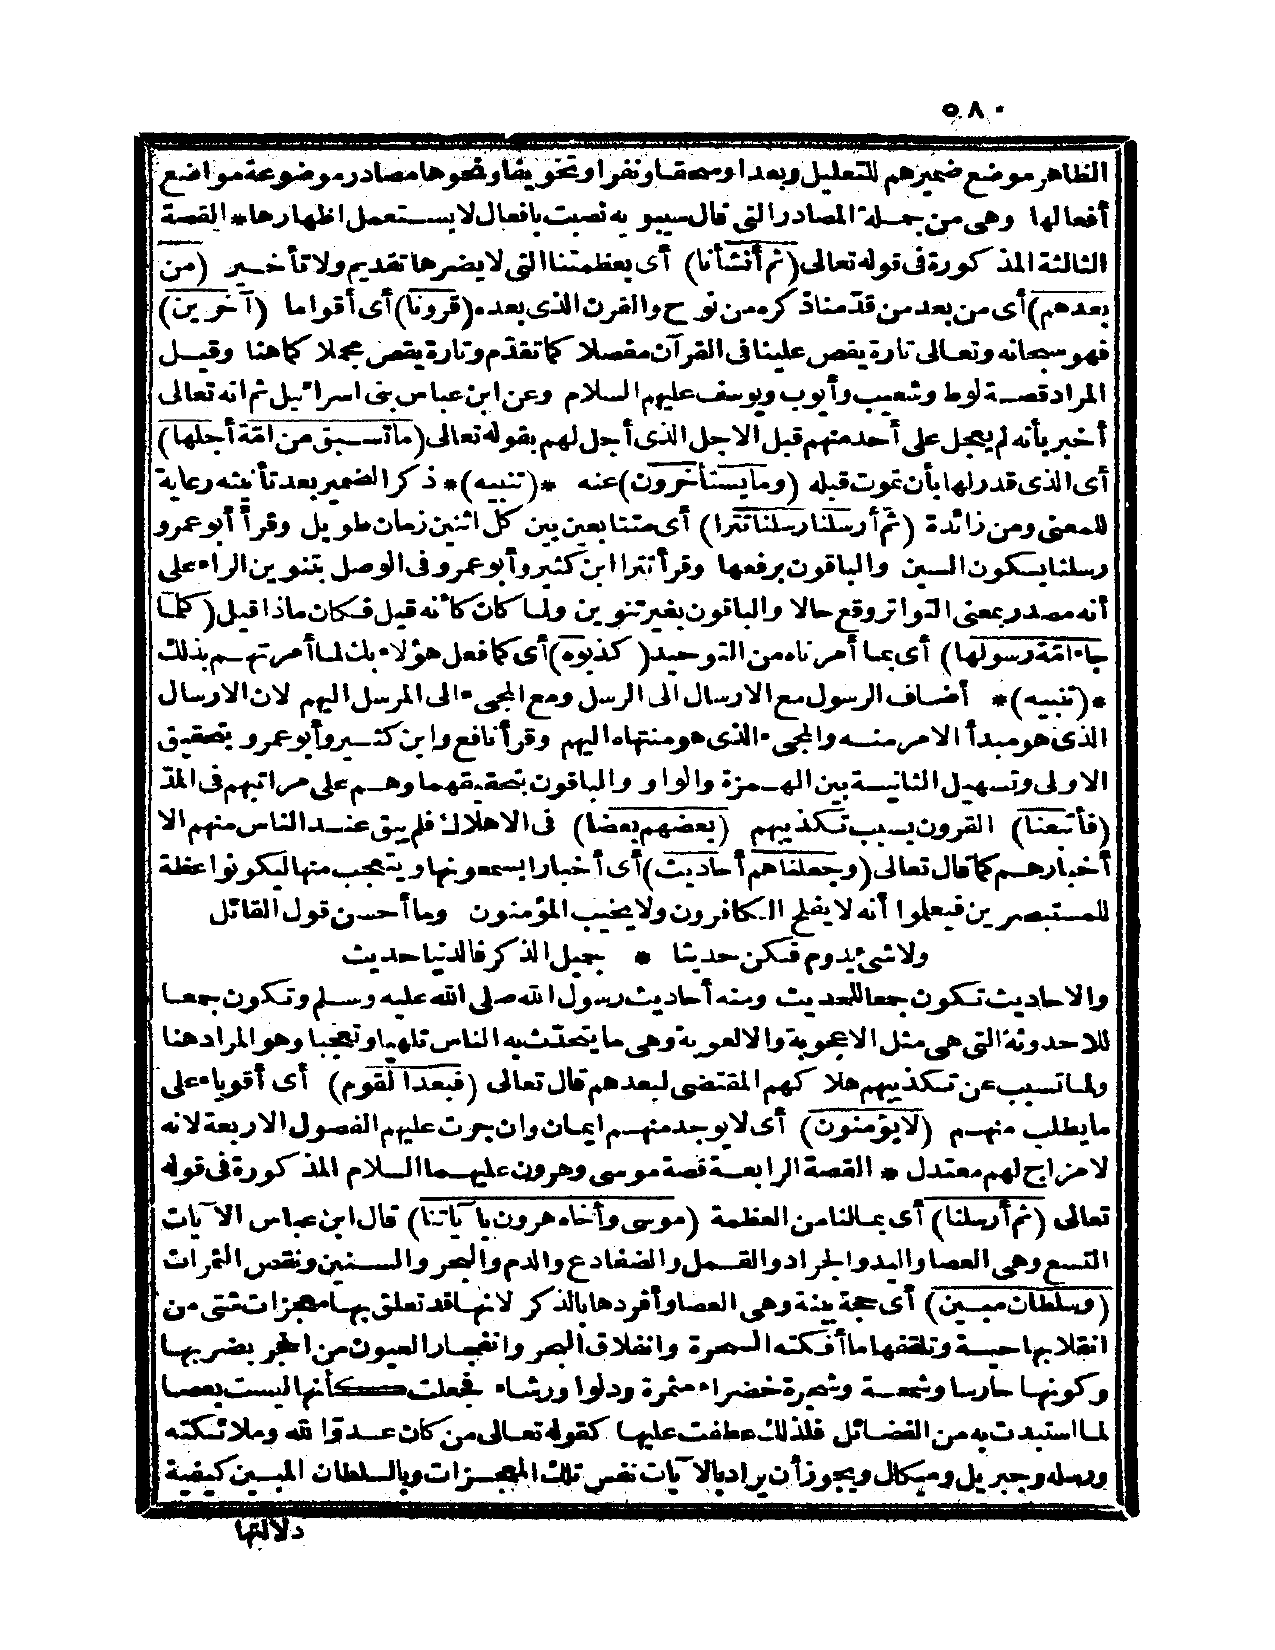 ٥٨٠
الظاهر موضع ضميرهم للتعليل وبعدا وسحقا ونفرا ونحو يفا ونحوها مصادر موضوعة مواضع
أفعالها وهى من جملة المصادر التى قال سيبو يه نصبت بافعال لا يستعمل اظهارها * القصة
الثالثة المذكورة فى قوله تعالى (ثم أنشأنا) أى بعظمتنا التى لا يضرها تقديم ولا تأخير (من
بعدهم) أى من بعد من قدّمنا ذكره من نوح والقرن الذى بعده (قرونا) أى أقواما (آخرين)
فهو سبحانه وتعالى تارة يقص علينا فى القرآن مفصلا كما تقدّم وتارة يقص مجملا كما هنا وقيل
المراد قصة لوط وشعيب وأيوب ويوسف عليهم السلام وعن ابن عباس بنى اسرائيل ثم انه تعالى
أخبر بأنه لم يعجل على أحد منهم قبل الاجل الذى أجل لهم بقوله تعالى (ما تسبق من امّة أجلها)
أى الذى قدر لها بأن تموت قبله (وما يستأخرون) عنه *(تنبيه)* ذكر الضمير بعد تأنيثه رعاية
للمعنى ومن زائدة (ثم أرسلنا رسلنا تترا) أى متتابعين بين كل اثنين زمان طويل وقرأ أبو عمرو
رسلنا بسكون السين والباقون برفعها وقرأ تترا ابن كثير وأبو عمرو فى الوصل بتنوين الراء على
أنه مصدر بمعنى التواتر وقع حالا والباقون بغير تنوين ولما كان كأنه قيل فكان ماذا قيل (كلما
جاء امّة رسولها) أى بما أمرناه من التوحيد (كذبوه) أى كما فعل هؤلاء بك لما أمرتهم بذلك
*(تنبيه)* أضاف الرسول مع الارسال الى الرسل ومع المجىء الى المرسل اليهم لان الارسال
الذى هو مبدأ الامر منه والمجىء الذى هو منتهاه اليهم وقرأ نافع وابن كثير وأبو عمرو بتحقيق
الاولى وتسهيل الثانية بين الهمزة والواو والباقون بتحقيقهما وهم على مراتبهم فى المدّ
(فأتبعنا) القرون بسبب تكذيبهم (بعضهم بعضا) فى الاهلاك فلم يبق عند الناس منهم الا
أخبارهم كما قال تعالى (وجعلناهم أحاديث) أى أخبارا يسمعونها ويتعجب منها ليكونوا عظة
للمستبصرين فيعلموا أنه لا يفلح الكافرون ولا يخيب المؤمنون وما أحسن قول القائل
ولا شىء يدوم فكن حديثا * جميل الذكر فالدنيا حديث
والاحاديث تكون جمعا للحديث ومنه أحاديث رسول الله صلى الله عليه وسلم وتكون جمعا
للاحدوثة التى هى مثل الاعجوبة والالعوبة وهى ما يتحدّث به الناس تلهيا وتعجبا وهو المراد هنا
ولما تسبب عن تكذيبهم هلاكهم المقتضى لبعدهم قال تعالى (فبعدا لقوم) أى أقوياء على
ما يطلب منهم (لا يؤمنون) أى لا يوجد منهم ايمان وان جرت عليهم الفصول الاربعة لانه
لا مزاج لهم معتدل * القصة الرابعة قصة موسى وهرون عليهما السلام المذكورة فى قوله
تعالى (ثم أرسلنا) أى بما لنا من العظمة (موسى وأخاه هرون بآياتنا) قال ابن عباس الآيات
التسع وهى العصا واليد والجراد والقمل والضفادع والدم والبحر والسنين ونقص الثمرات
(وسلطان مبين) أى حجة بينة وهى العصا وأفردها بالذكر لانها قد تعلق بها معجزات شتى من
انقلابها حية وتلقفها ما أفكته السحرة وانفلاق البحر وانفجار العيون من الحجر بضربها
وكونها حارسا وشمعة وشجرة خضراء مثمرة ودلوا ورشاء فجعلت كأنها ليست بعصا
لما استبدت به من الفضائل فلذلك عطفت عليها كقوله تعالى من كان عدوّا لله وملائكته
ورسله وجبريل وميكال ويجوز أن يراد بالآيات نفس تلك المعجزات وبالسلطان المبين كيفية
دلالتها